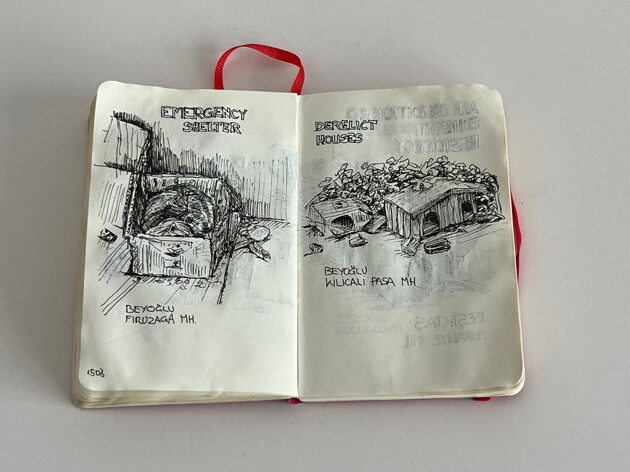 EMERGENCY
SHELTER
BEYOĞLU
FIRUZAGA MH.
1508
DERELICT
HOUSES
BEYOĞLU
KILICALI PASA MH